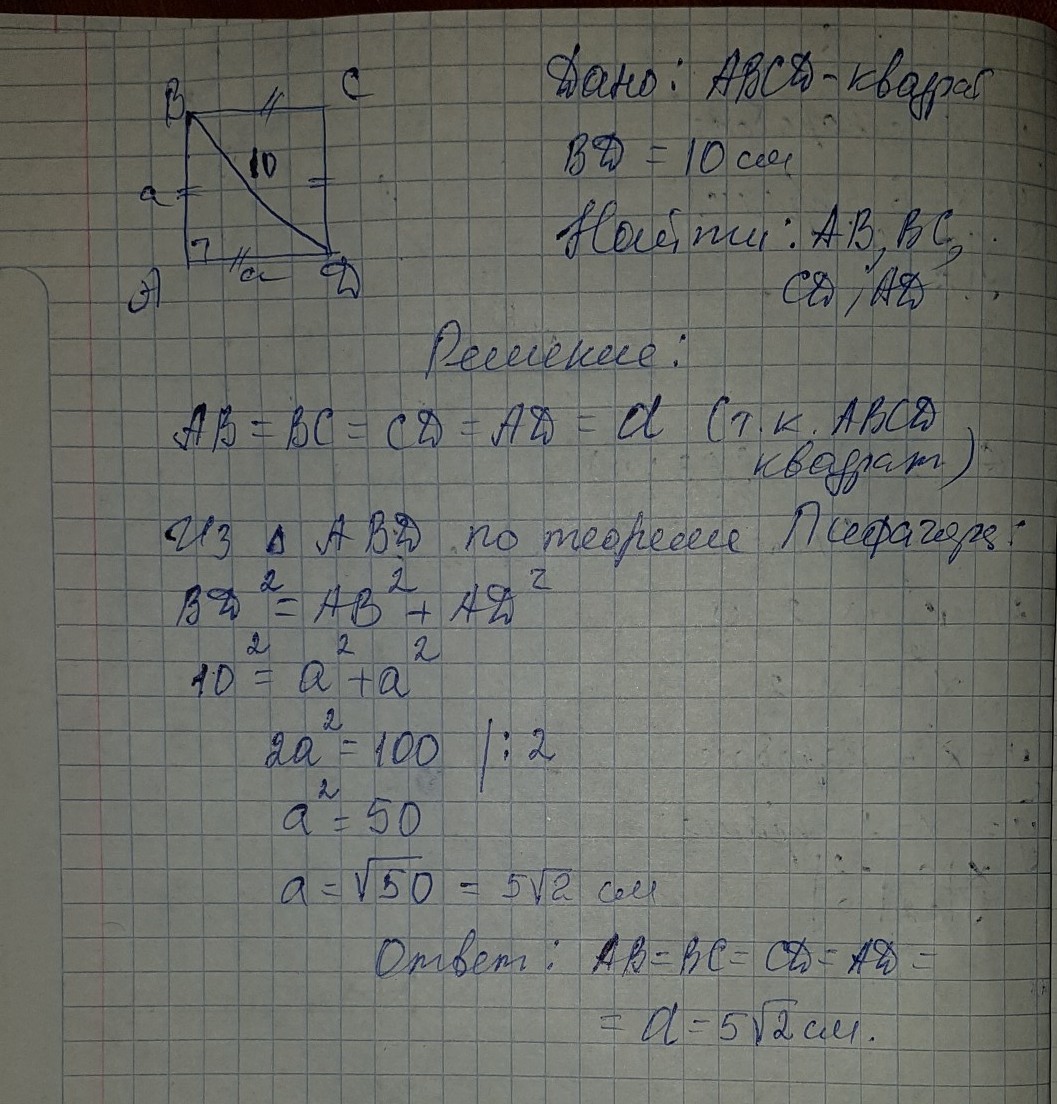 B C
10
a
a
A D
Дано: ABCD - квадрат
BD = 10 см
Найти: AB, BC,
CD, AD
Решение:
AB = BC = CD = AD = a (т.к. ABCD
квадрат)
Из Δ ABD по теореме Пифагора:
BD² = AB² + AD²
10² = a² + a²
2a² = 100 | : 2
a² = 50
a = √50 = 5√2 см
Ответ: AB = BC = CD = AD =
= a = 5√2 см.